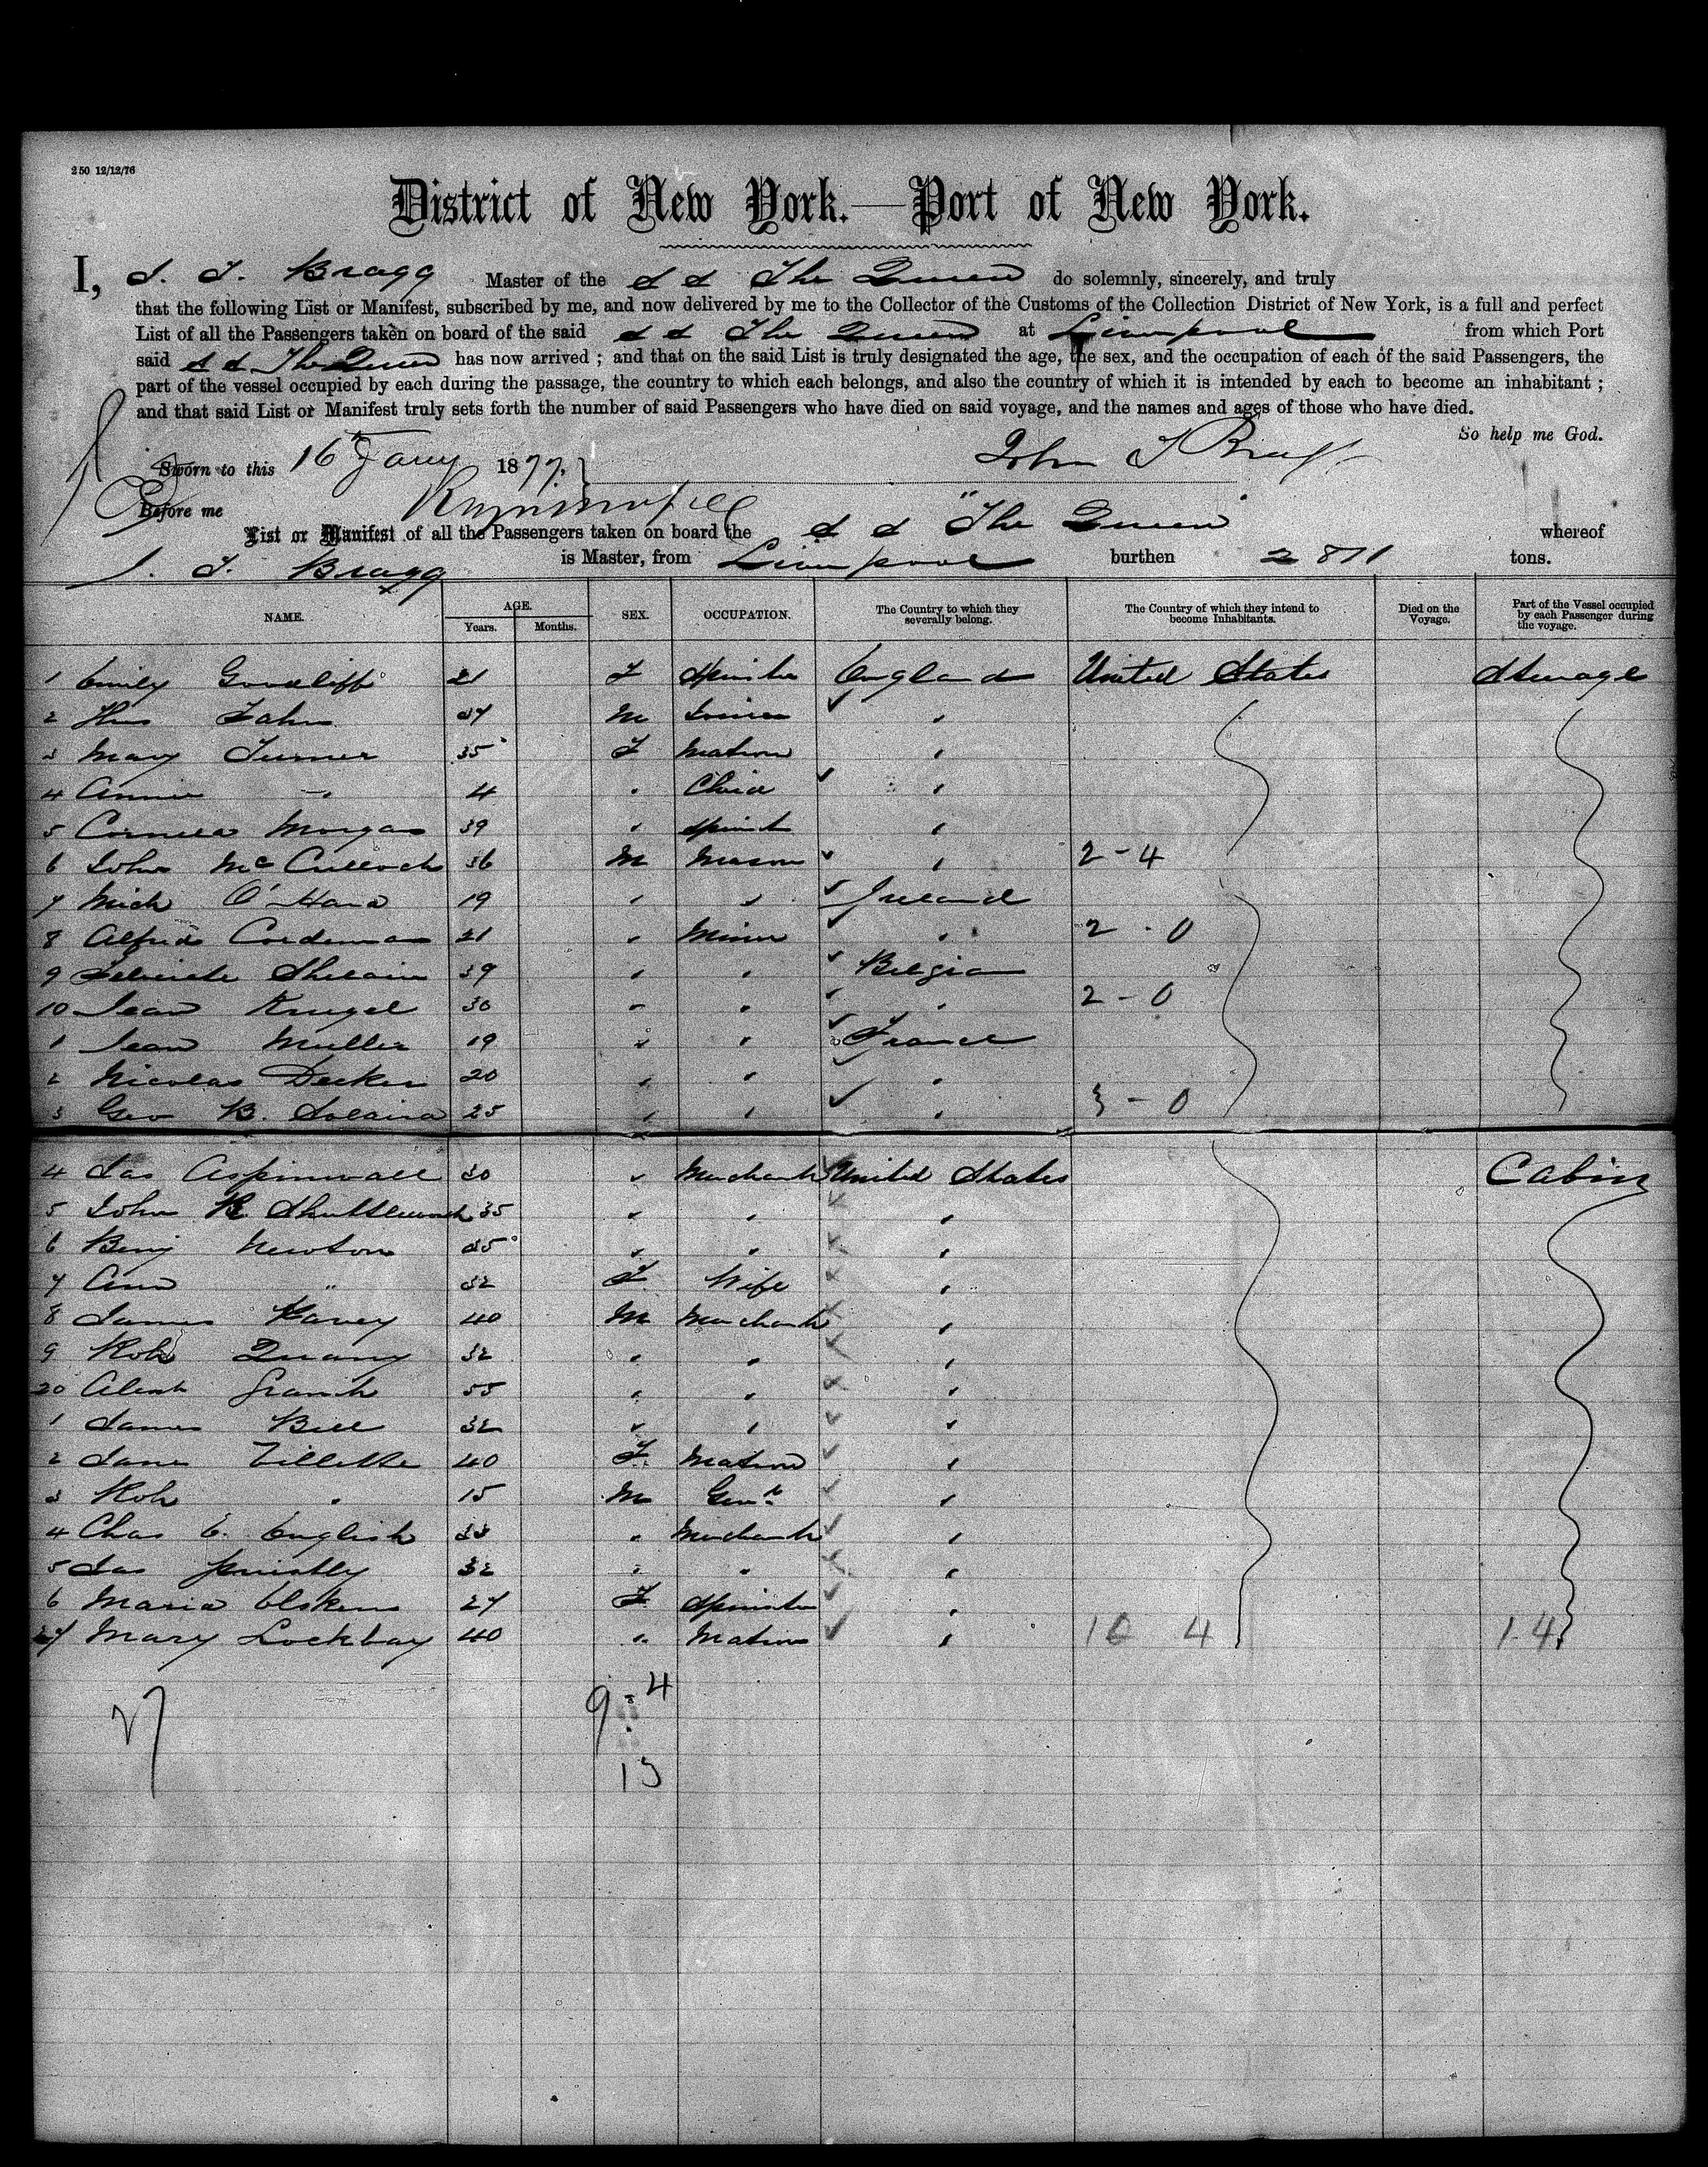 250 12/12/76
District of New York.—Port of New York.
I, J. T. Bragg Master of the S S The Queen do solemnly, sincerely, and truly
that the following List or Manifest, subscribed by me, and now delivered by me to the Collector of the Customs of the Collection District of New York, is a full and perfect
List of all the Passengers taken on board of the said S S The Queen at Liverpool from which Port
said S S The Queen has now arrived ; and that on the said List is truly designated the age, the sex, and the occupation of each of the said Passengers, the
part of the vessel occupied by each during the passage, the country to which each belongs, and also the country of which it is intended by each to become an inhabitant ;
and that said List or Manifest truly sets forth the number of said Passengers who have died on said voyage, and the names and ages of those who have died.
So help me God.
Sworn to this 16th Jany 1877. John T Bragg
Before me
List or Manifest of all the Passengers taken on board the S S "The Queen" whereof
J. T. Bragg is Master, from Liverpool burthen 2811 tons.
NAME. AGE. Years. Months. SEX. OCCUPATION. The Country to which they severally belong. The Country of which they intend to become Inhabitants. Died on the Voyage. Part of the Vessel occupied by each Passenger during the voyage.
1 Emily Goodliff 21 F Spinster England United States Steerage
2 Hy Fahn 27 M "
3 Mary Turner 35 F Matron "
4 Annie " 4 " Child "
5 Cornelia Morgan 39 " Spinst "
6 John McCulloch 36 M Mason " 2-4
7 Mich O'Hara 19 " " Ireland
8 Alfred 21 " Miner " 2-0
9 39 " " Belgian
10 Jean Krugel 30 " " " 2-0
1 Jean Muller 19 " " France
2 Nicolas Decker 20 " " "
3 Geo B. 25 " " " 3-0
4 Jas Aspinwall 30 " Merchant United States Cabin
5 John R. Shuttleworth 35 " " "
6 Benj Newton 35 " " "
7 Ann " 32 F Wife "
8 James Harvey 40 M Merchant "
9 Robt 32 " " "
20 Alexr French 55 " " "
1 James Bell 32 " " "
2 Jane Tillotte 40 F Matron "
3 Robt " 15 M Gent "
4 Chas E. English 33 " Merchant "
5 Jas Priestly 32 " " "
6 Maria Elskens 27 F Spinster "
27 Mary Lockbay 40 " Matron " 10 4 14
27
9-4
13